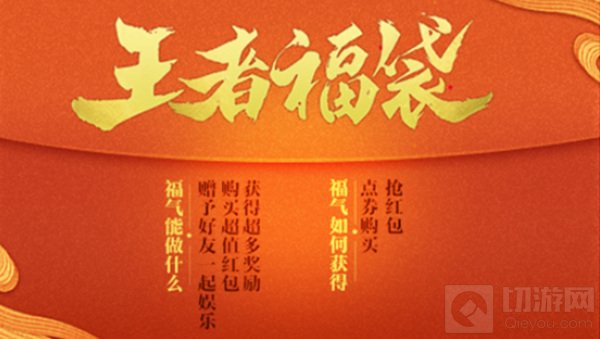 王者福袋
福气如何获得
抢红包
点券购买
福气能做什么
获得超多奖励
购买超值红包
赠予好友一起娱乐
切游网
Qieyou.com